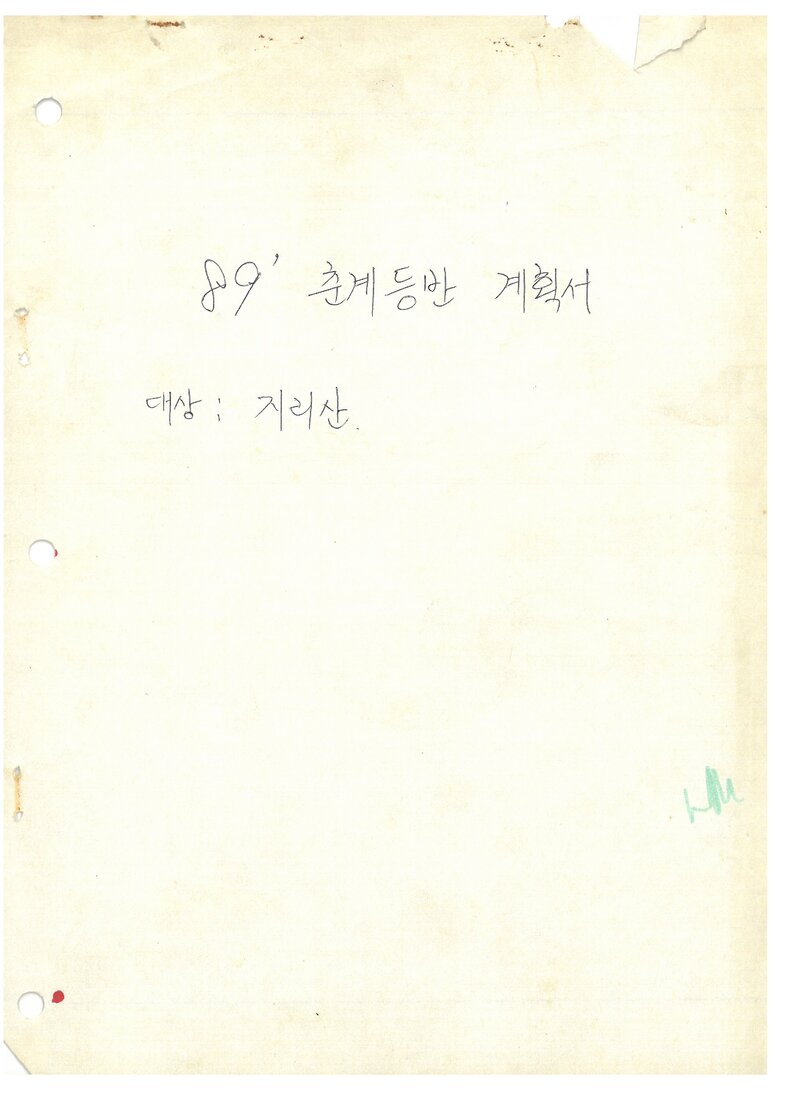 89' 춘계등반 계획서
대상 : 지리산.